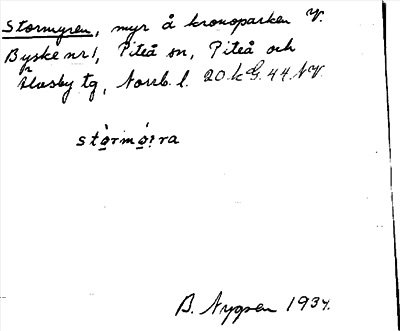 Stormyren, myr å kronoparken V.
Byske nr 1, Piteå sn, Piteå och
Älvsby tg, Norrb. l. 20.k G.44.NV
stòrmó:ra
B. Nygren 1934.